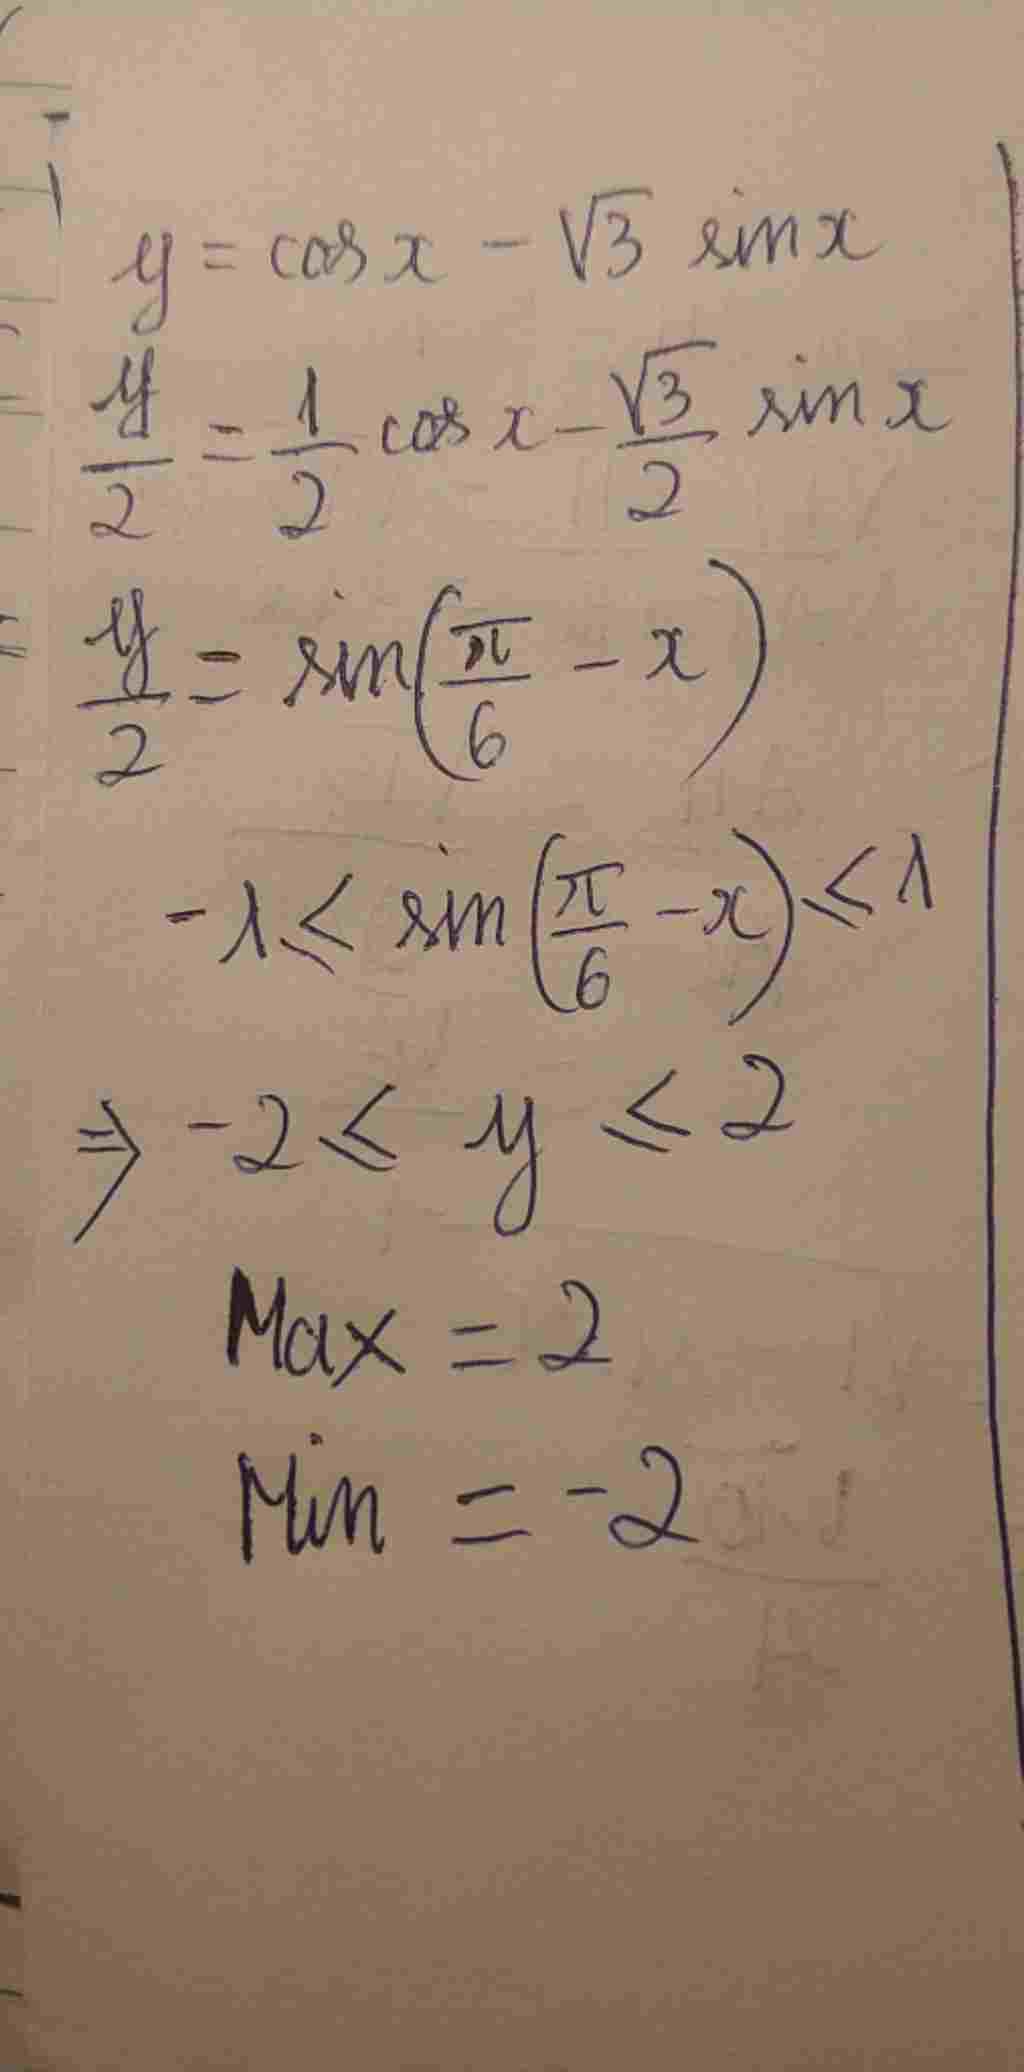 y = cos x - √3 sin x
y/2 = 1/2 cos x - √3/2 sin x
y/2 = sin(π/6 - x)
-1 ≤ sin(π/6 - x) ≤ 1
⇒ -2 ≤ y ≤ 2
Max = 2
Min = -2